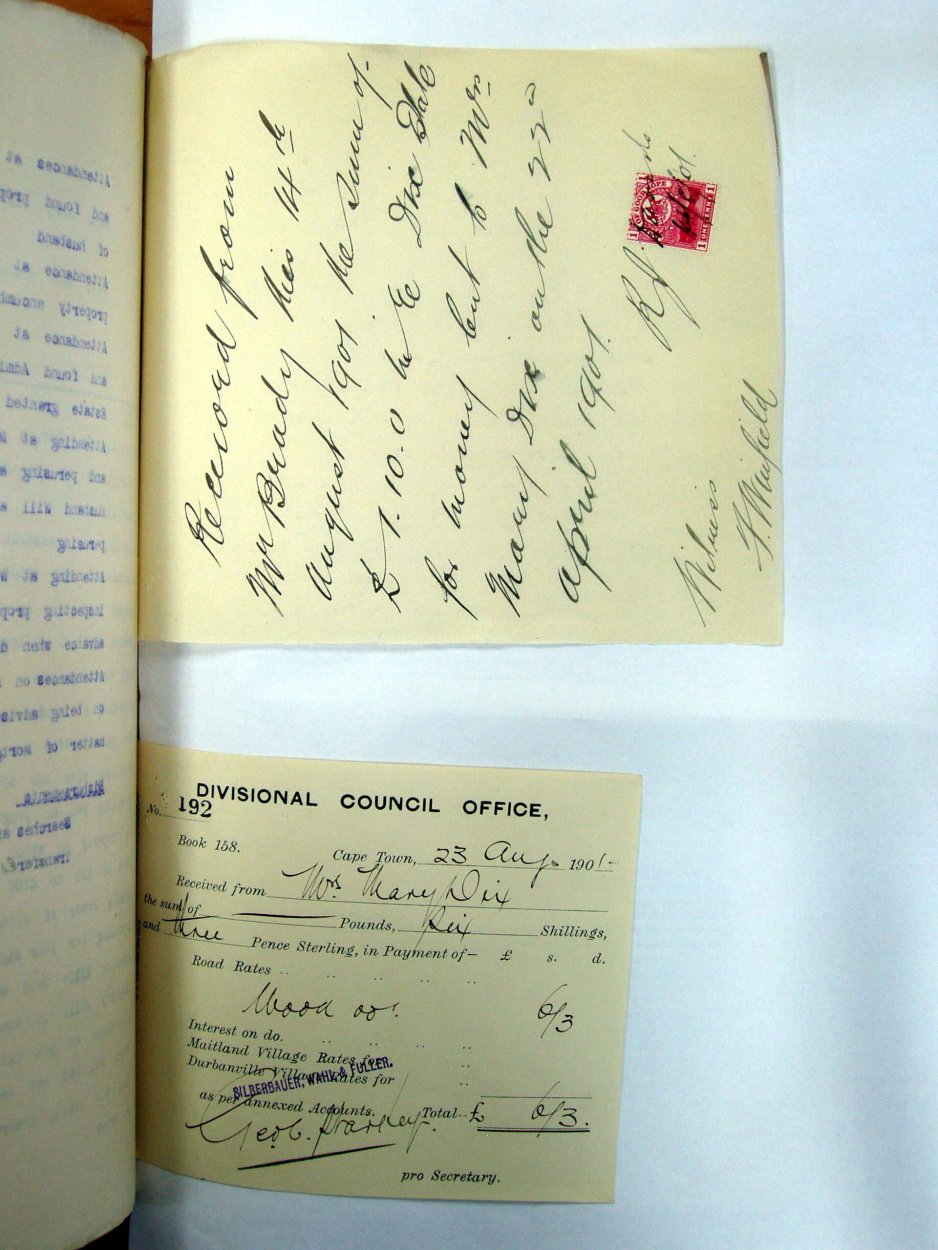 Attendances at
and found prop
of husband
Attendance at
property encumb
Attendance at
and found Admi
Estate granted
Attending at
and perusing a
Husband Will a
perusing
Attending at W
inspecting prop
advance when d
Attendances on
on being advis
matter of Mortg
Disbursements
Searches an
Transfer
Received from
Mr Brady this 14th
August 1901 the sum of
£ 1.10.0 in re Dix Estate
for money lent to Mrs
Mary Dix on the 22nd
April 1901.
OF GOOD HOPE
1 ONE PENNY 1
Witness
DIVISIONAL COUNCIL OFFICE,
No. 192
Book 158.
Cape Town, 23 Aug. 1901-
Received from Mrs Mary Dix
the sum of Pounds, Six Shillings,
and three Pence Sterling, in Payment of- £ s. d.
Road Rates .. .. .. .. ..
6/3
Interest on do. .. .. .. ..
Maitland Village Rates for ..
Durbanville Village Rates for ..
SILBERBAUER, WAHL & FULLER.
as per annexed Accounts. Total..£ 6/3.
pro Secretary.